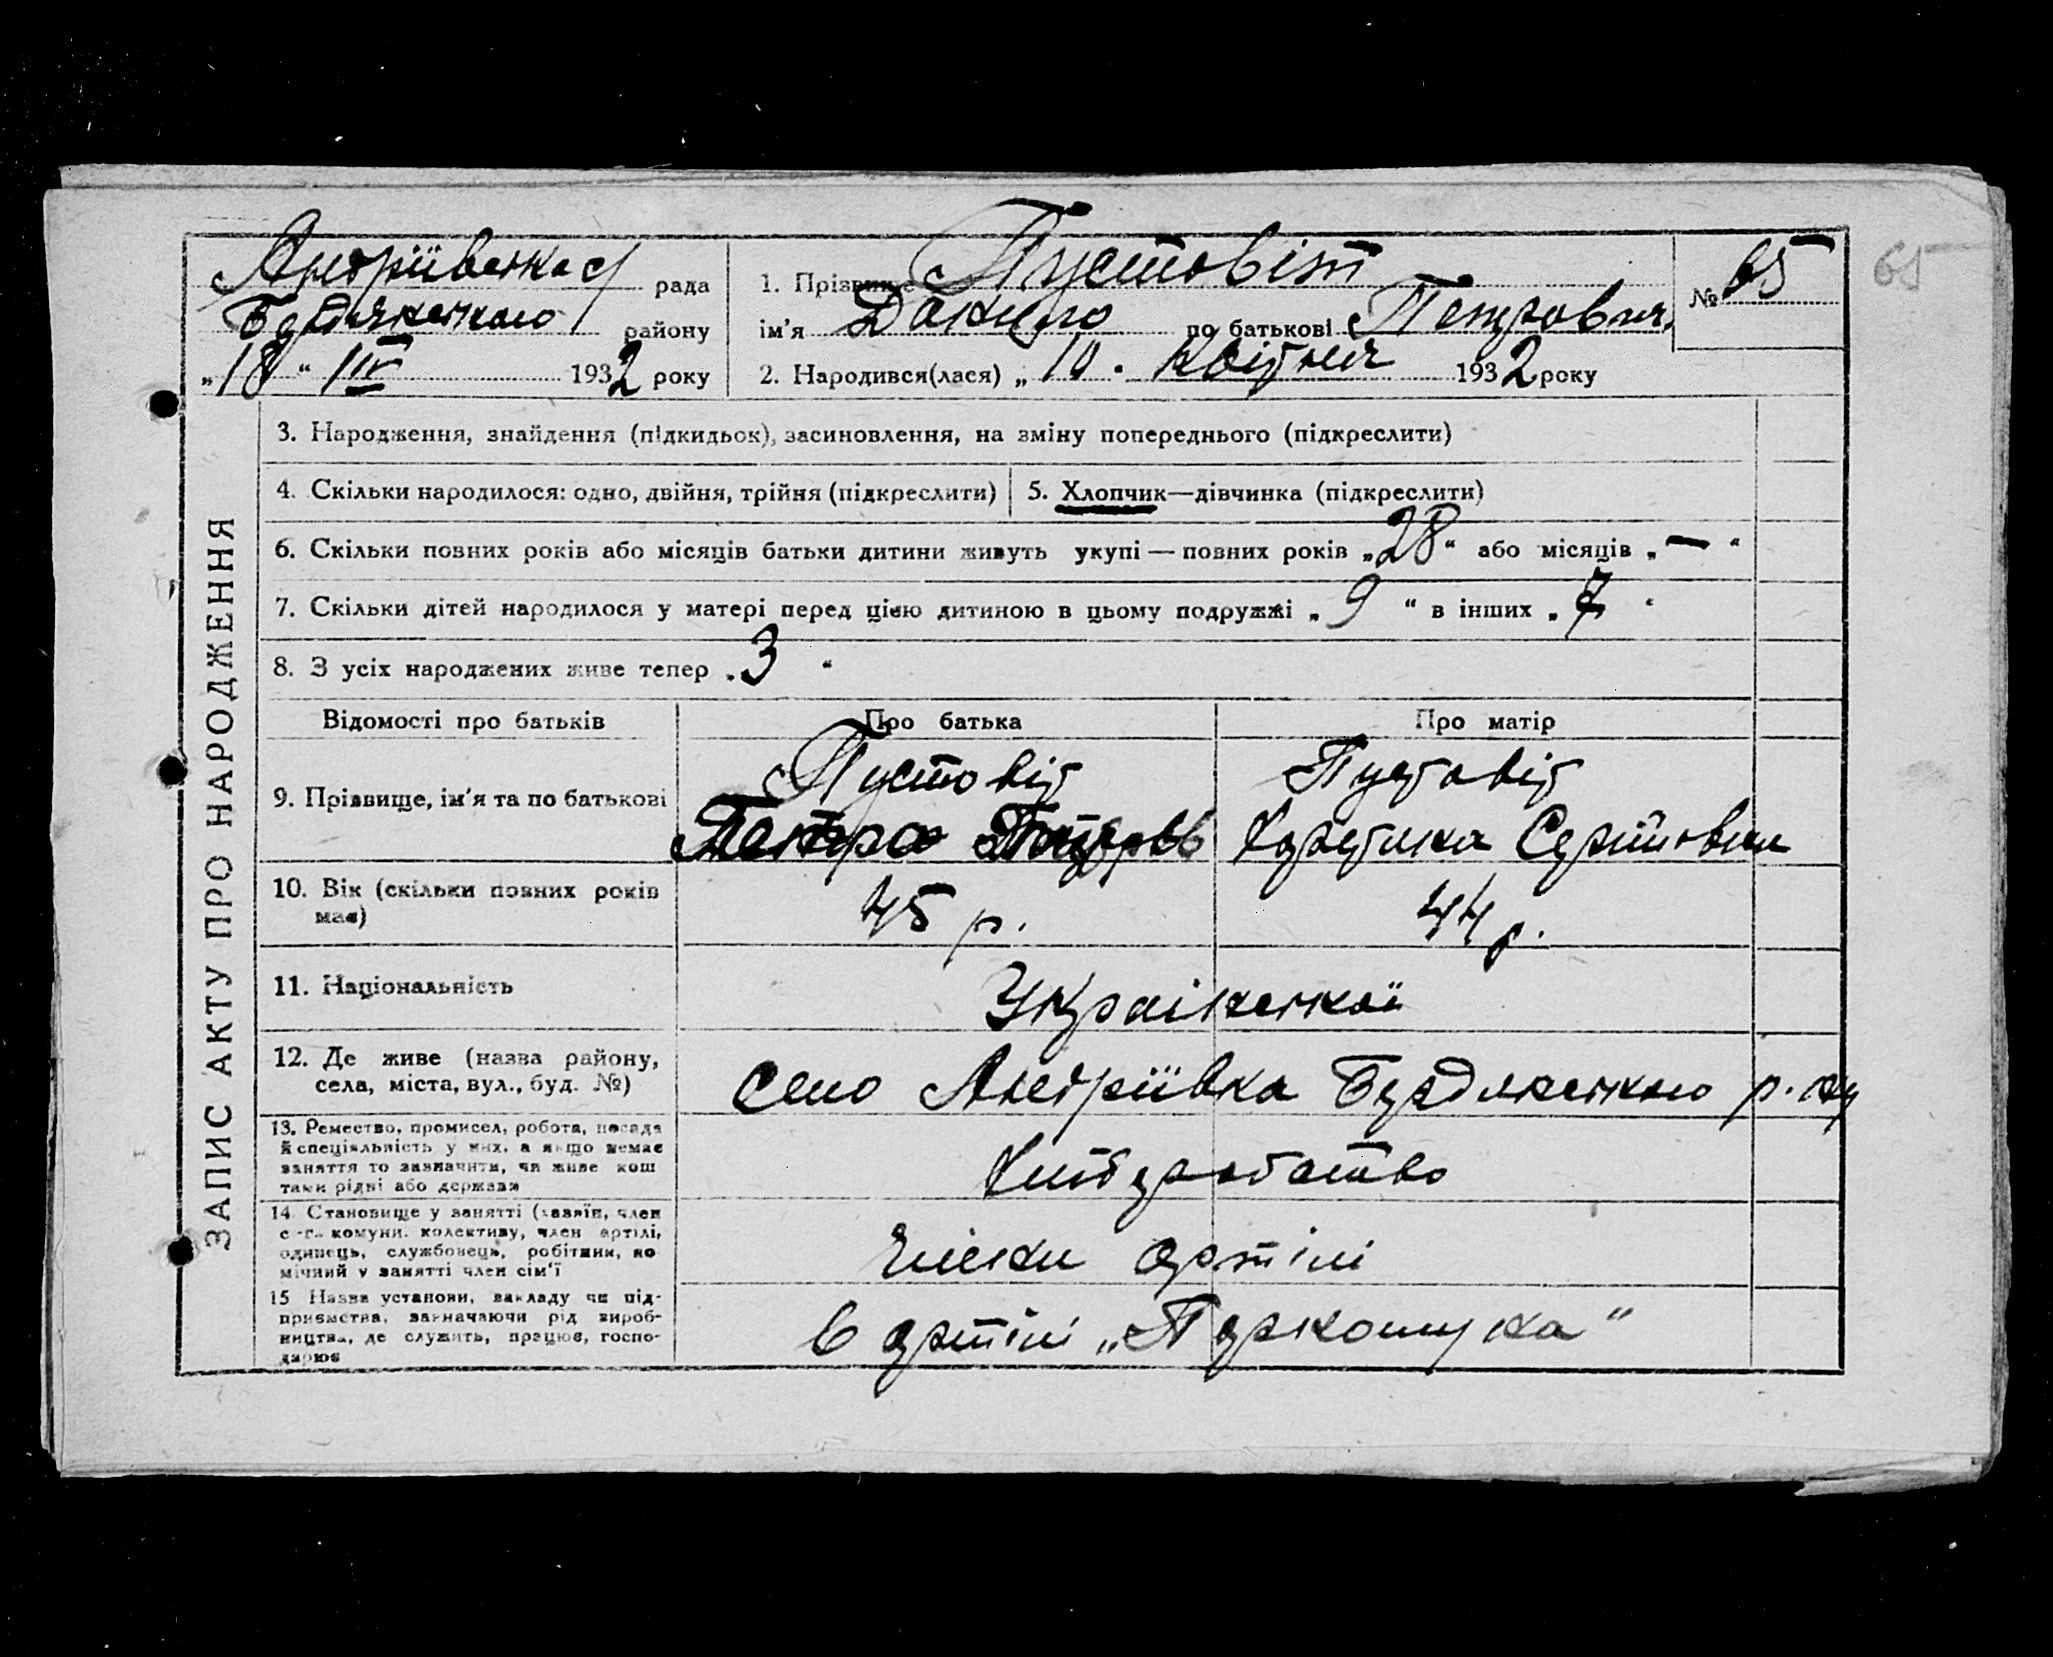 ЗАПИС АКТУ ПРО НАРОДЖЕННЯ
Андріївська с/ рада
Бердянського району
„18“ IV 1932 року
1. Прізвище Пустовіт
ім'я Данило по батькові Петрович
2. Народився(лася) „10. Квітня 1932 року
№ 65
65
3. Народження, знайдення (підкидьок), засиновлення, на зміну попереднього (підкреслити)
4. Скільки народилося: одно, двійня, трійня (підкреслити)
5. Хлопчик—дівчинка (підкреслити)
6. Скільки повних років або місяців батьки дитини живуть укупі — повних років „28“ або місяців „—“
7. Скільки дітей народилося у матері перед цією дитиною в цьому подружжі „9“ в інших „
8. З усіх народжених живе тепер „3“
Відомості про батьків
Про батька
Про матір
9. Прізвище, ім'я та по батькові
Пустовіт
Петро
Пустовіт
10. Вік (скільки повних років
має)
45 р.
44 р.
11. Національність
Української
12. Де живе (назва району,
села, міста, вул., буд. №)
село Андріївка Бердянського р.
13. Ремество, промисел, робота, посада
й спеціяльність у них, а якщо немає
заняття то зазначити, чи живе кош
тами рідні або держави
Хліборобство
14. Становище у занятті (хазяїн, член
с.-г. комуни, колективу, член артілі,
одинець, службовець, робітник, по
мічний у занятті член сім'ї
Члени артілі
15 Назва установи, закладу чи під-
приємства, зазначаючи рід вироб-
ництва, де служить, працює, госпо-
дарює
в артілі „